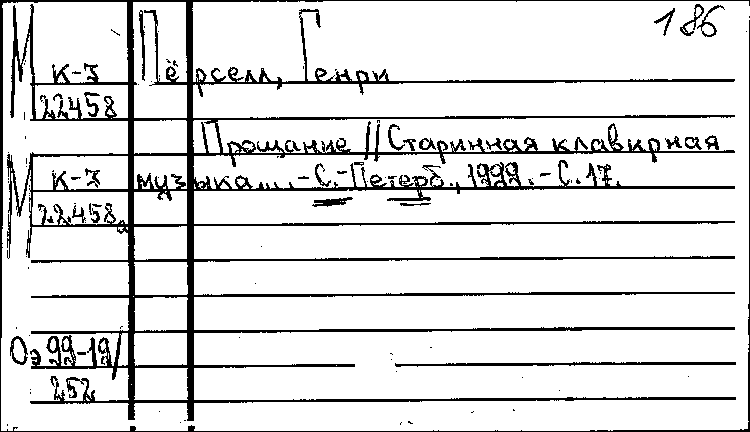 186
М К-3 Пёрселл, Генри
22458
Прощание // Старинная клавирная
М К-3 музыка... .-С.-Петерб., 1999. - С. 17.
22458а
Оэ 99-19/
252